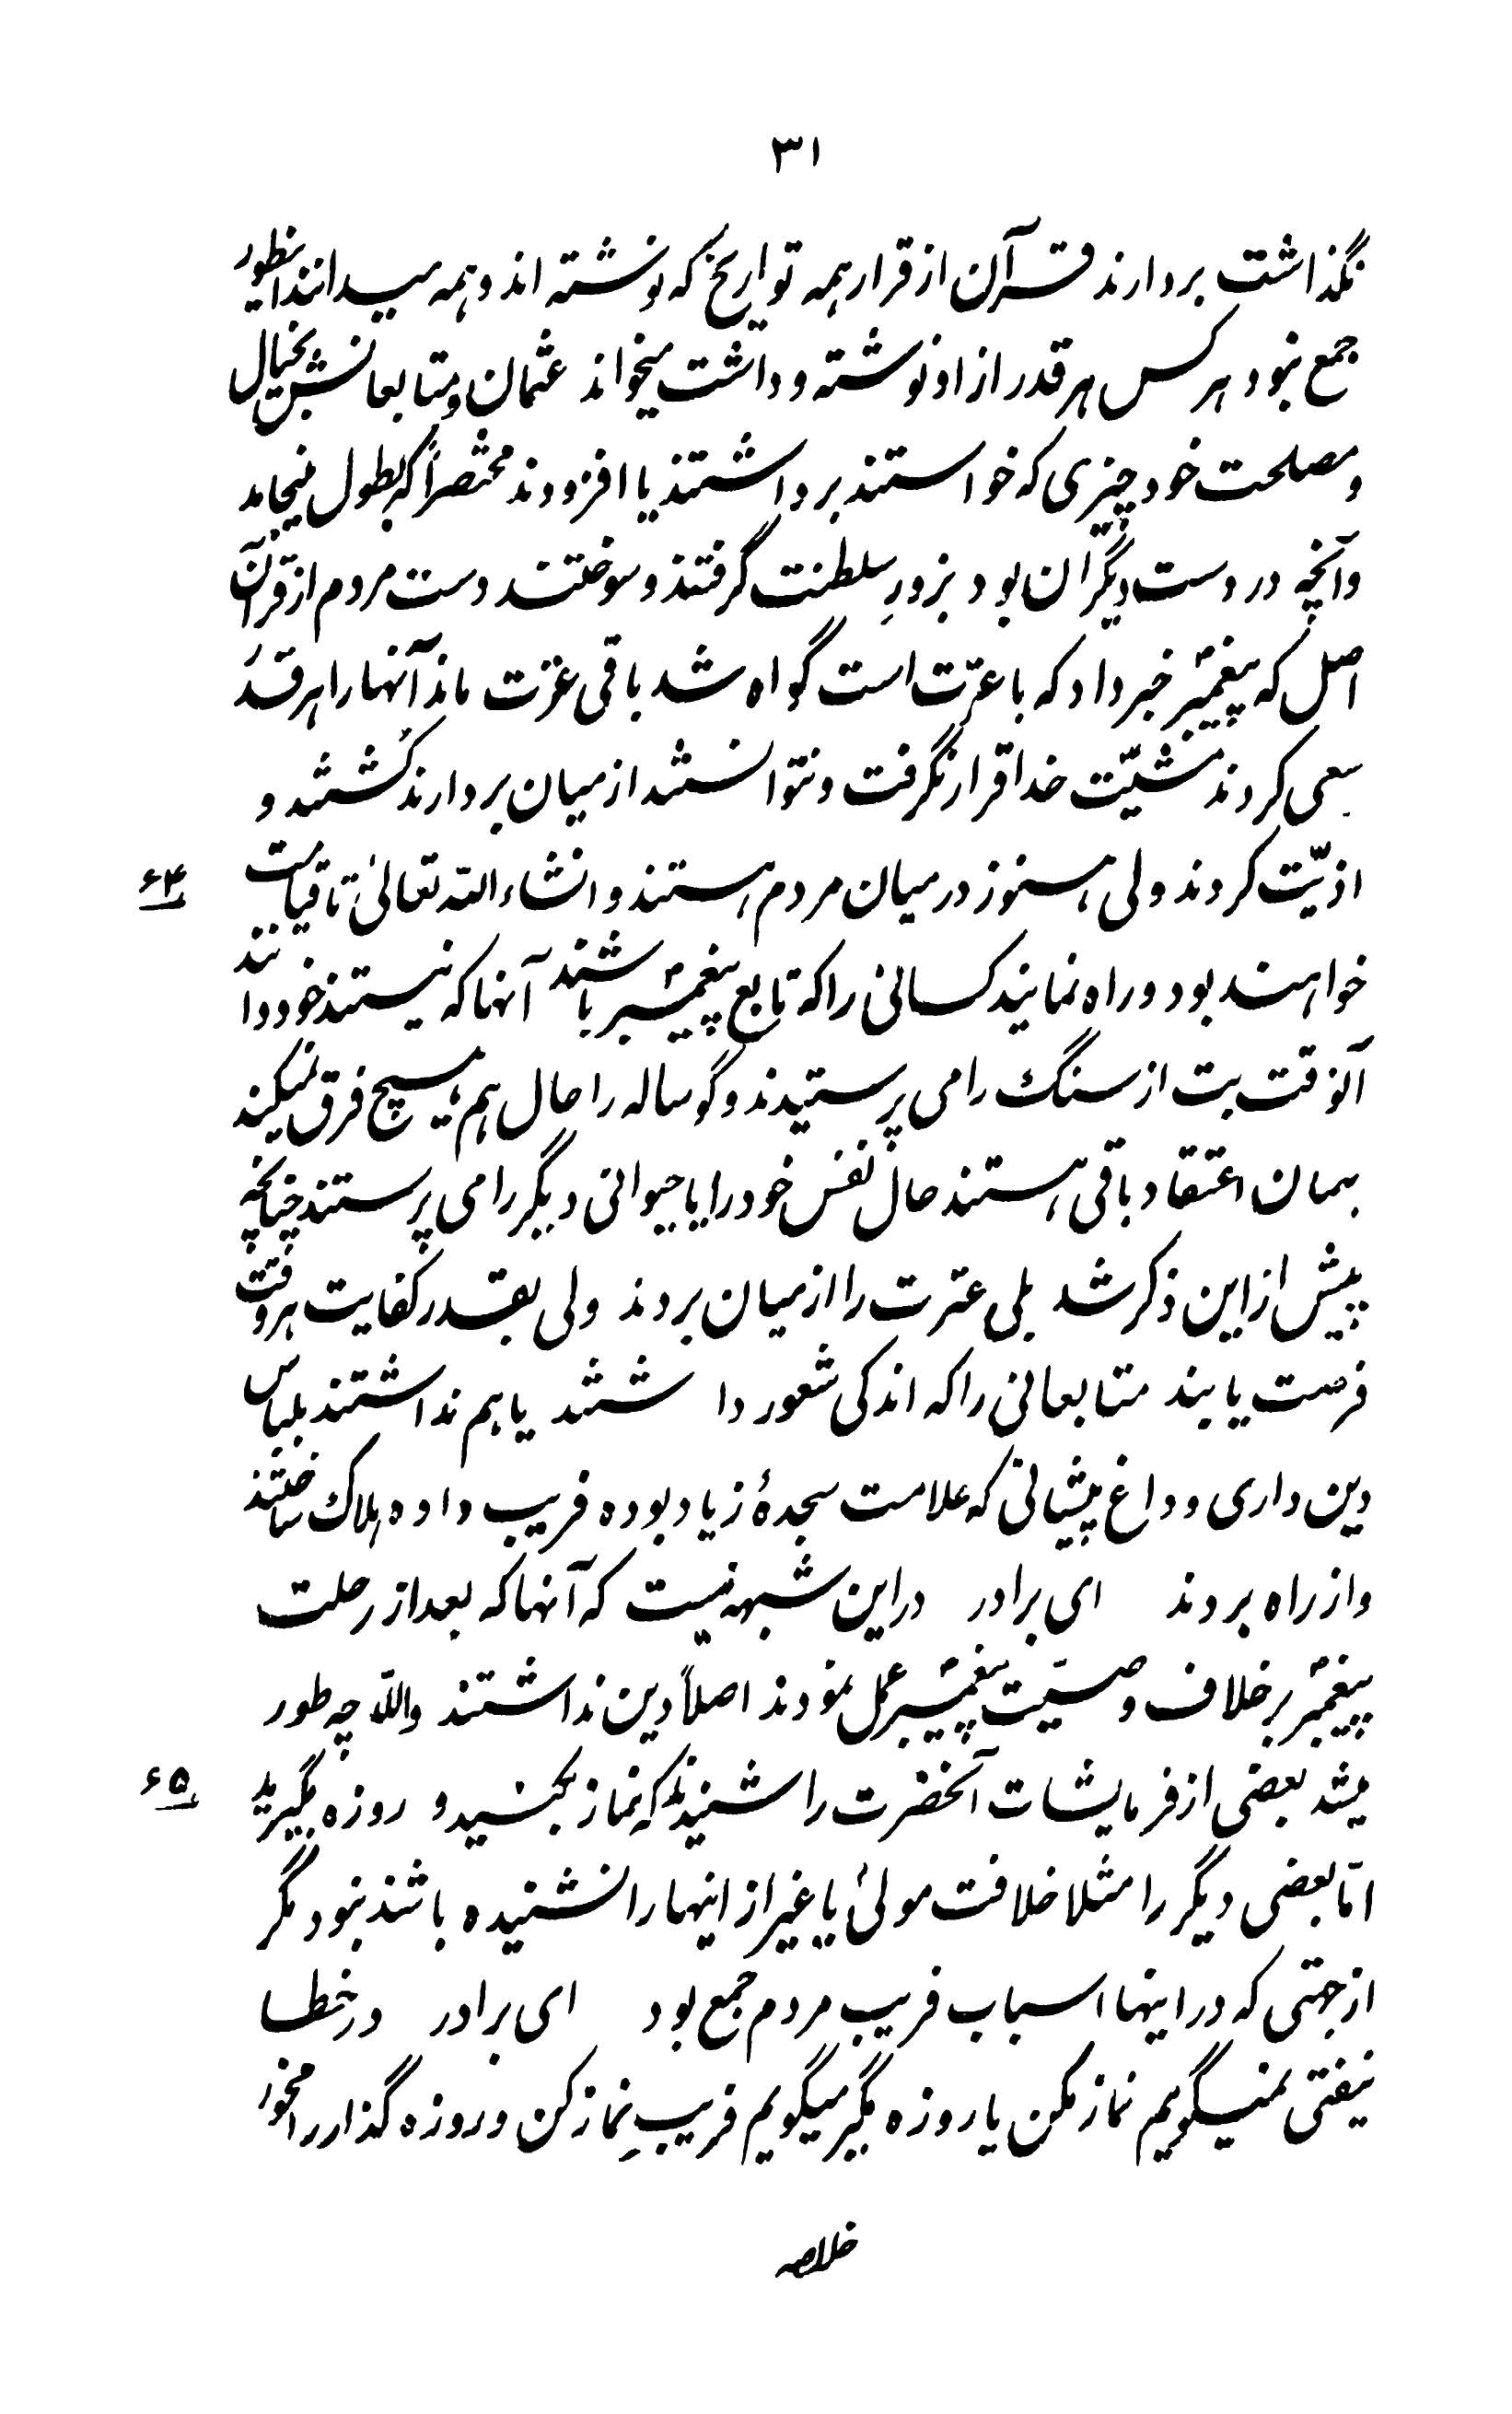 ۳۱
نگذاشت بردارند قرآن از قرار همه تواریخ که نوشته اند و همه میدانند اینطور
جمع نبود هر کس هر قدر از او نوشته و داشت میخواند عثمان و متابعانش بخیال
و مصلحت خود چیزی که خواستند برداشتند یا افزودند مختصراً که بطول نیجامد
و آنچه در دست دیگران بود بزورِ سلطنت گرفتند و سوختند دست مردم از قرآن
اصل که پیغمبر خبر داد که با عترت است گواه شد باقی عترت ماند آنها را هر قدر
سعی کردند مشیّت خدا قرار نگرفت و نتوانستند از میان بردارند کُشتند و
اذیّت کردند ولی هنوز در میان مردم هستند و انشاء الله تعالیٰ تا قیامت
۶۴
خواهند بود و راه نمایند کسانی را که تابع پیغمبر باشند آنها که نیستند خود دانند
آنوقت بت از سنگ را می پرستیدند و گوساله را حال هم هیچ فرق نمیکند
بهمان اعتقاد باقی هستند حال نفس خود را یا حیوانی دیگر را می پرستند چنانچه
پیش از این ذکر شد بلی عترت را از میان بردند ولی بقدر کفایت هر وقت
فرصت یابند متابعانی را که اندکی شعور داشتند یا هم نداشتند بلباس
دین داری و داغ پیشانی که علامت سجدهٔ زیاد بوده فریب داده هلاک ساختند
و از راه بردند ای برادر در این شبهه نیست که آنها که بعد از رحلت
پیغمبر برخلاف وصیّت پیغمبر عمل نمودند اصلاً دین نداشتند والّا چه طور
میشد بعضی از فرمایشات آنحضرت را شنیدند که نماز بکنید و روزه بگیرید
۶۵
امّا بعضی دیگر را مثلا خلافت مولیٰ یا غیر از اینها را نشنیده باشند نبود مگر
از جهتی که در اینها اسباب فریب مردم جمع بود ای برادر در خطا
نیفتی نمیگویم نماز مکن یا روزه مگیر میگویم فریبِ نماز کن و روزه گذار را مخور
خلاصه